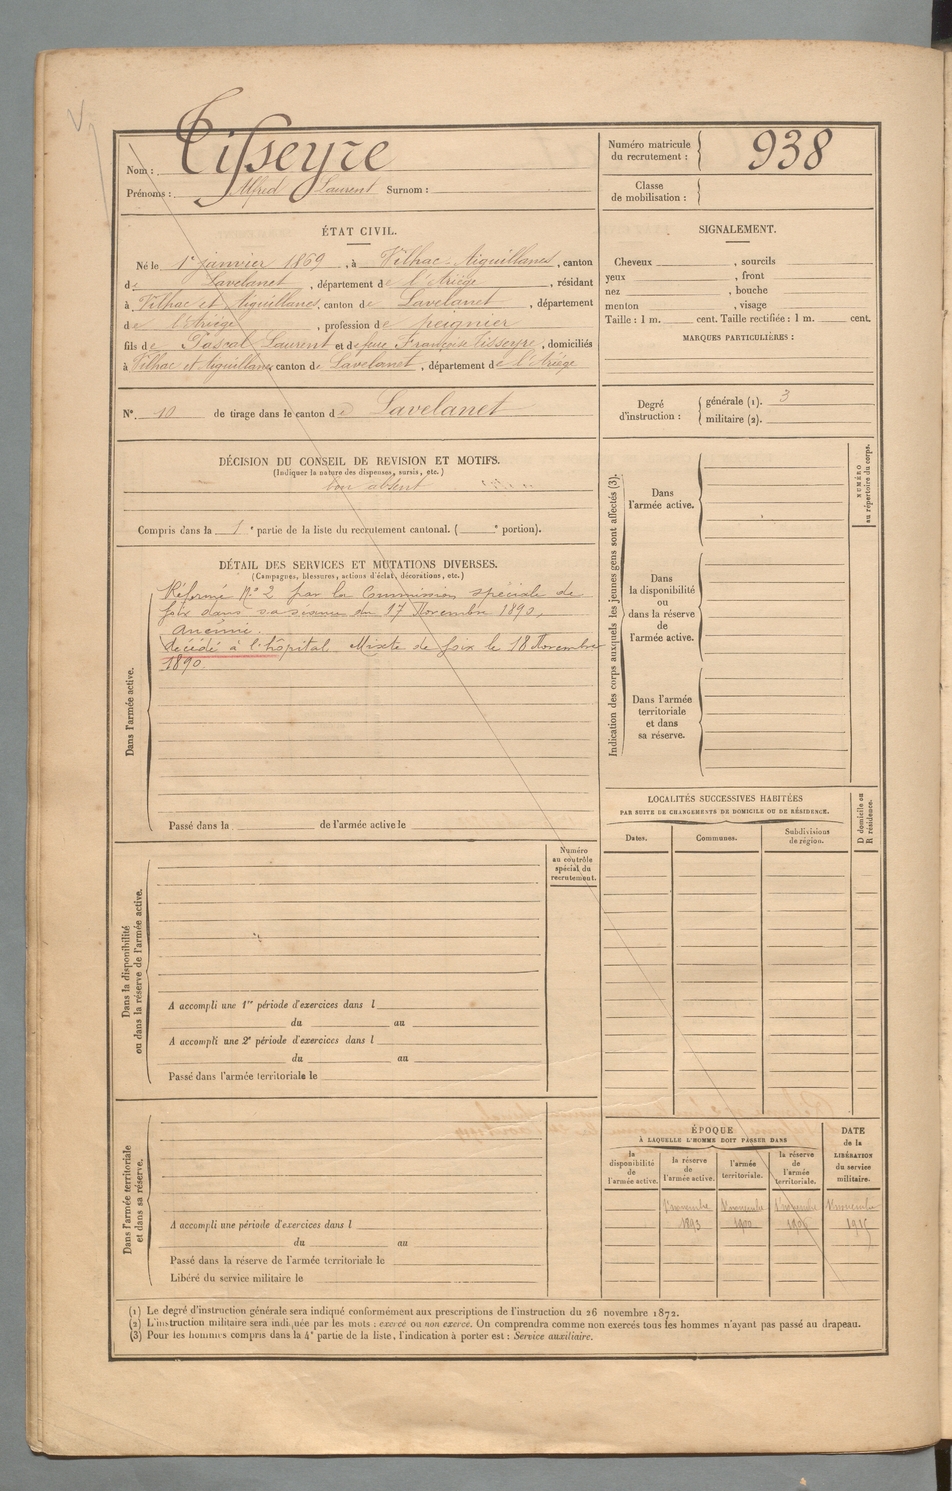 Nom : Tisseyre
Prénoms : Alfred Laurent Surnom :
Numéro matricule du recrutement : 938
Classe de mobilisation :
ÉTAT CIVIL.
Né le 1er janvier 1869, à Vilhac-Aiguillanes, canton
de Lavelanet, département de l'Ariège, résidant
à Vilhac et Aiguillanes, canton de Lavelanet, département
de l'Ariège, profession de peignier
fils de Pascal Laurent et de feue Françoise Tisseyre, domiciliés
à Vilhac et Aiguillanes canton de Lavelanet, département de l'Ariège
N°. 10 de tirage dans le canton de Lavelanet
SIGNALEMENT.
Cheveux , sourcils
yeux , front
nez , bouche
menton , visage
Taille : 1 m. cent. Taille rectifiée : 1 m. cent.
MARQUES PARTICULIÈRES :
Degré d'instruction : générale (1). 3
militaire (2).
DÉCISION DU CONSEIL DE REVISION ET MOTIFS.
(Indiquer la nature des dispenses, sursis, etc.)
bon absent
Compris dans la 1e partie de la liste du recrutement cantonal. ( e portion).
DÉTAIL DES SERVICES ET MUTATIONS DIVERSES.
(Campagnes, blessures, actions d'éclat, décorations, etc.)
Dans l'armée active.
Réformé N° 2 par la Commission spéciale de
foix dans sa séance du 17 Novembre 1890,
anémie.
décédé à l'hôpital Mixte de foix le 18 Novembre
1890
Passé dans la de l'armée active le
Dans la disponibilité ou dans la réserve de l'armée active.
Numéro au contrôle spécial du recrutement.
A accompli une 1re période d'exercices dans l
du au
A accompli une 2e période d'exercices dans l
du au
Passé dans l'armée territoriale le
Dans l'armée territoriale et dans sa réserve.
A accompli une période d'exercices dans l
du au
Passé dans la réserve de l'armée territoriale le
Libéré du service militaire le
Indication des corps auxquels les jeunes gens sont affectés (3).
NUMÉRO au répertoire du corps.
Dans l'armée active.
Dans la disponibilité ou dans la réserve de l'armée active.
Dans l'armée territoriale et dans sa réserve.
LOCALITÉS SUCCESSIVES HABITÉES
PAR SUITE DE CHANGEMENTS DE DOMICILE OU DE RÉSIDENCE.
D domicile ou R résidence.
Dates. Communes. Subdivisions de région.
ÉPOQUE
À LAQUELLE L'HOMME DOIT PASSER DANS
la disponibilité de l'armée active.
la réserve de l'armée active.
l'armée territoriale.
la réserve de l'armée territoriale.
DATE de la LIBÉRATION du service militaire.
1 novembre 1 novembre 1 novembre 1 novembre
1893 1900 1915
(1) Le degré d'instruction générale sera indiqué conformément aux prescriptions de l'instruction du 26 novembre 1872.
(2) L'instruction militaire sera indiquée par les mots : exercé ou non exercé. On comprendra comme non exercés tous les hommes n'ayant pas passé au drapeau.
(3) Pour les hommes compris dans la 4e partie de la liste, l'indication à porter est : Service auxiliaire.